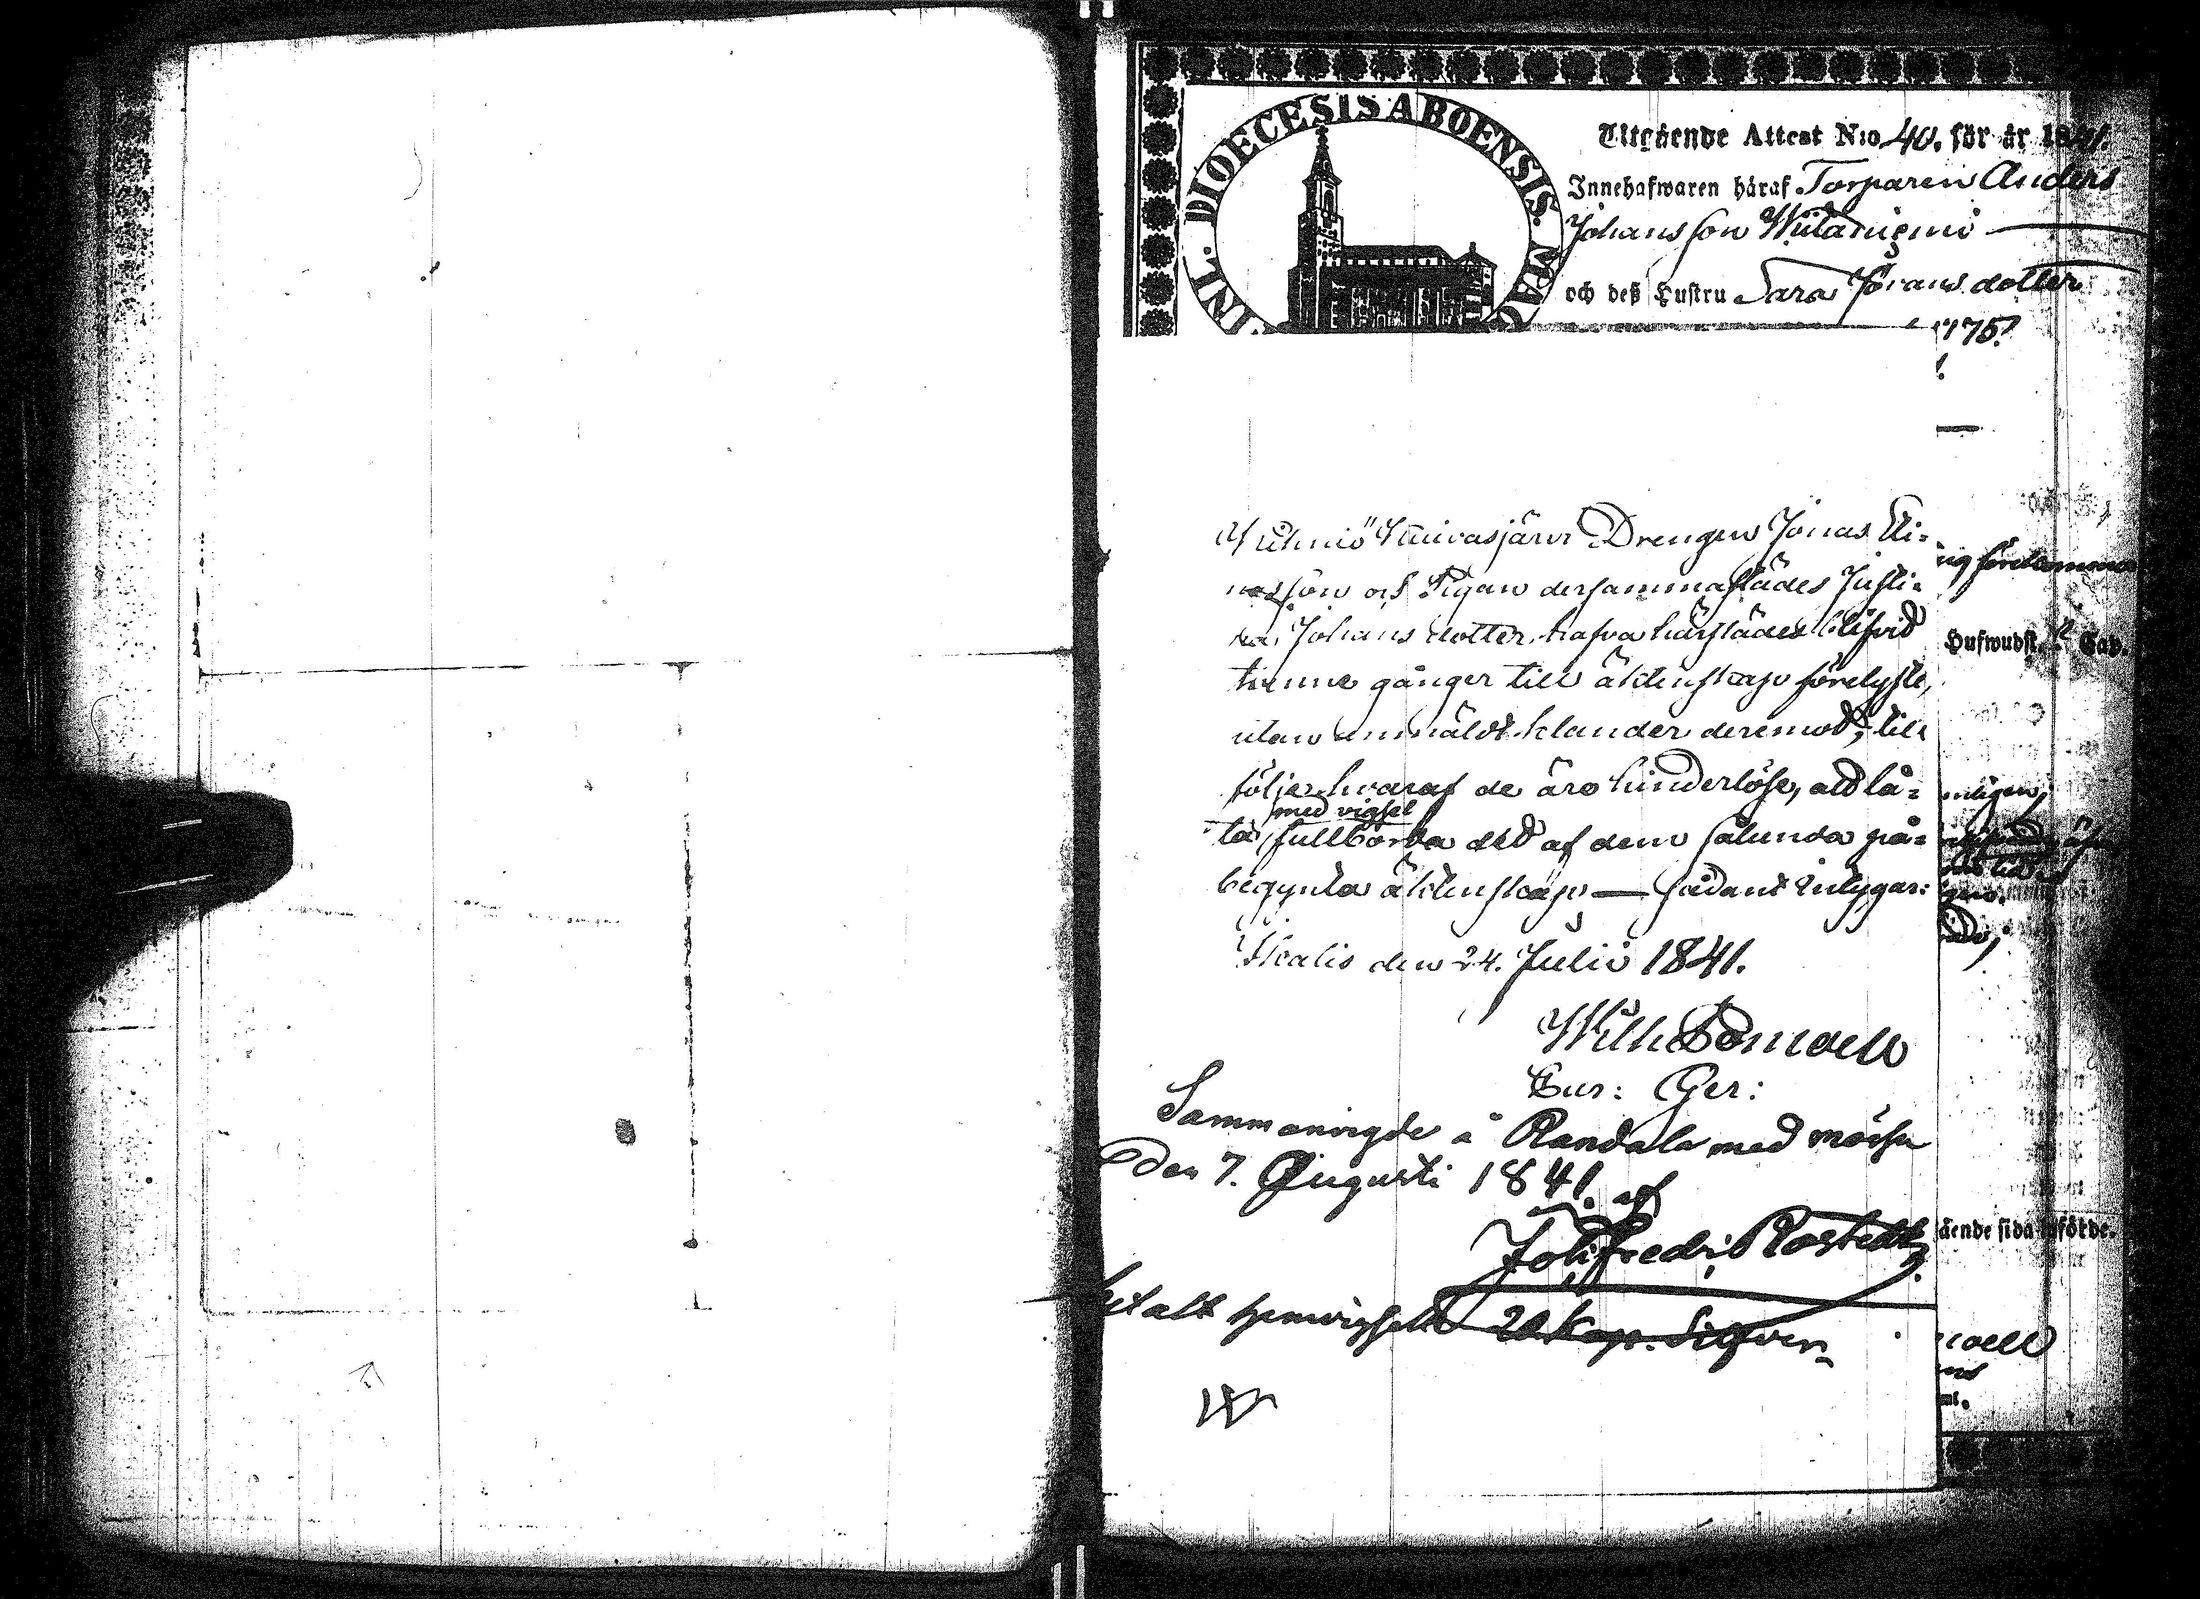 INL. DIOECESIS ABOENSIS. MAG
Utgående Attest N:o 40. för år 1841.
Innehafwaren häraf Torparen Anders
Johansson Wiitaniemi
och deß Hustru Sara Jöransdotter
175
Drengen Jonas Ei=
nasson och Pigan dersammastädes Justi=
na Johans dotter hafva härstädes blifvid
trenne gånger till äktenskap förelyste,
utan anmäldt klander deremod; till
följe hvaraf de äro hinderlöse, att lå=
med vigsel
ta fullborda det af dem sålunda på=
begynta äktenskap — sådant intygar:
Ikalis den 24. Julii 1841.
Wilh Bomoell
Cur: Ger:
Sammanvigde å Randala med mössa
den 7. Augusti 1841. af
Joh: Fredr: Rostedt
betalt hemvigsel 20 Kop. Silfver
förekomma
Hufwudst. Cap.
ående sida införde.
oell